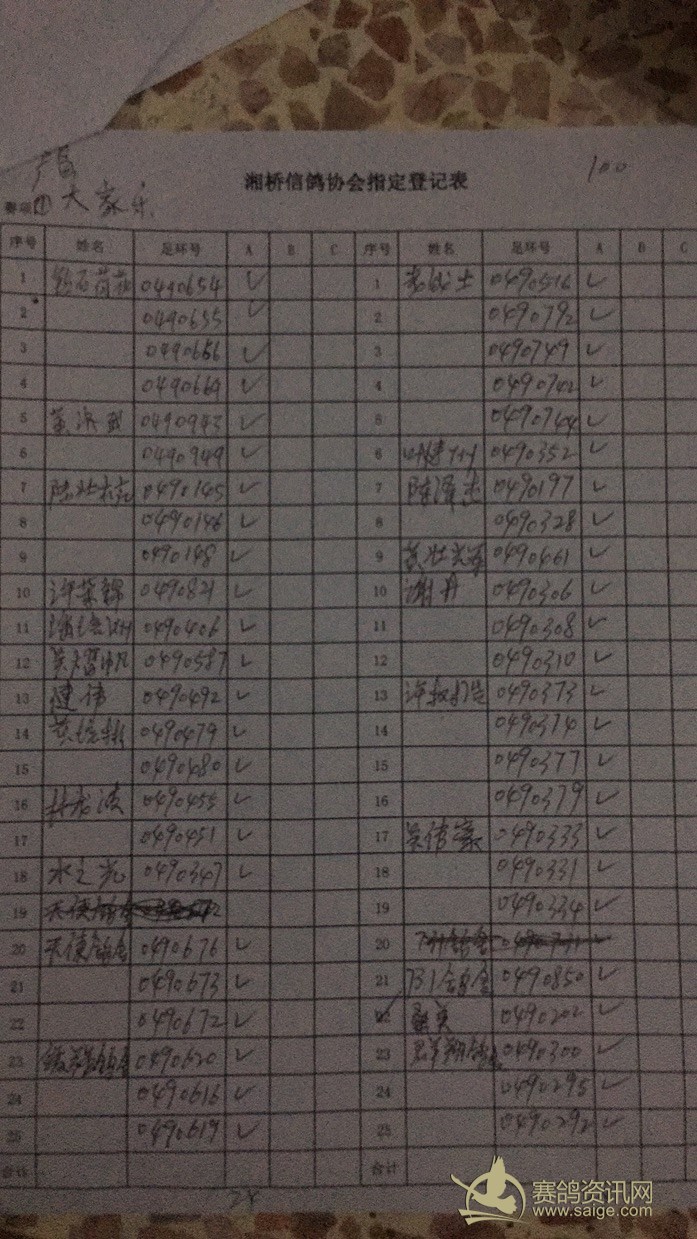 湘桥信鸽协会指定登记表
100
赛项① 大家乐
序号 姓名 足环号 A B C 序号 姓名 足环号 A B C
1 0490654 ✓ 1 0490516 ✓
2 0490655 ✓ 2 0490792 ✓
3 0490656 ✓ 3 0490749 ✓
4 0490664 ✓ 4 0490742 ✓
5 0490943 ✓ 5 0490744 ✓
0490949 ✓ 6 0490352 ✓
7 0490145 ✓ 7 陈泽杰 0490197 ✓
8 0490146 ✓ 8 0490328 ✓
9 0490148 ✓ 9 0490661 ✓
10 许荣锦 0490821 ✓ 10 谢丹 0490306 ✓
11 0490406 ✓ 11 0490308 ✓
12 0490587 ✓ 12 0490310 ✓
13 建伟 0490492 ✓ 13 0490373 ✓
14 0490479 ✓ 14 0490374 ✓
15 0490480 ✓ 15 0490377 ✓
16 0490455 ✓ 16 0490379 ✓
17 0490451 ✓ 17 吴伟豪 0490333 ✓
18 水之光 0490347 ✓ 18 0490331 ✓
19 19 0490334 ✓
20 天使鸽舍 0490676 ✓ 20
21 0490673 ✓ 21 0490850 ✓
22 0490672 ✓ 0490202 ✓
23 0490620 ✓ 23 0490300 ✓
24 0490616 ✓ 24 0490295 ✓
25 0490619 ✓ 25 0490292 ✓
合计 合计
24
赛鸽资讯网
www.saige.com